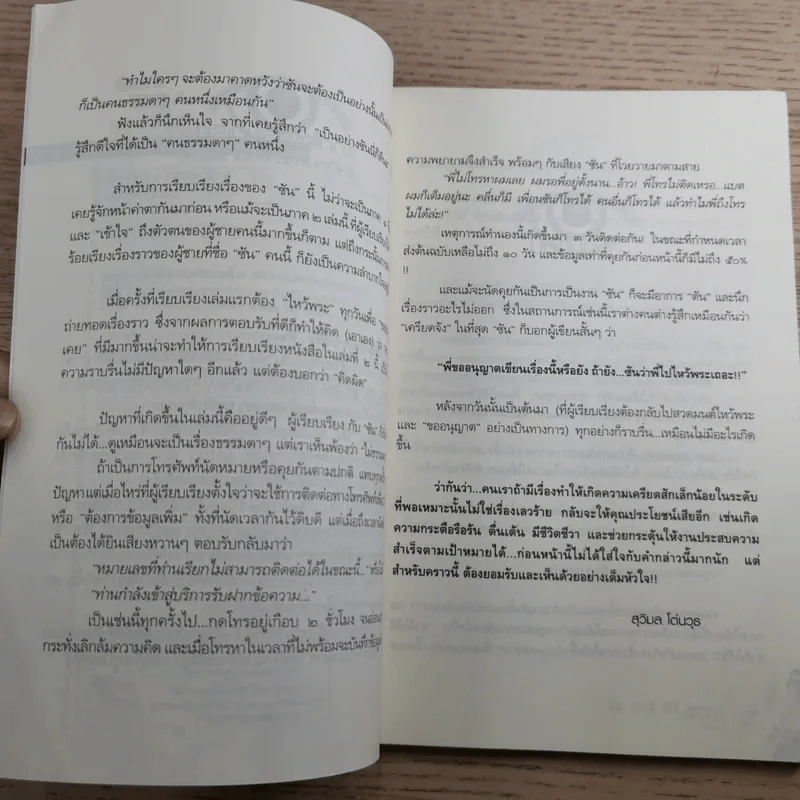 "ทำไมใครๆ จะต้องมาคาดหวังว่าซันจะต้องเป็นอย่างนั้นเป็น
ก็เป็นคนธรรมดาๆ คนหนึ่งเหมือนกัน"
ฟังแล้วก็นึกเห็นใจ จากที่เคยรู้สึกว่า "เป็นอย่างซันนี่ก็ดี
รู้สึกดีใจที่ได้เป็น "คนธรรมดาๆ" คนหนึ่ง
สำหรับการเรียบเรียงเรื่องของ "ซัน" นี้ ไม่ว่าจะเป็นภาค ๑
เคยรู้จักหน้าค่าตากันมาก่อน หรือแม้จะเป็นภาค ๒ เล่มนี้ ที่ผู้เรียบเรียง
และ "เข้าใจ" ถึงตัวตนของผู้ชายคนนี้มากขึ้นก็ตาม แต่ถึงกระนั้น
ร้อยเรียงเรื่องราวของผู้ชายที่ชื่อ "ซัน" คนนี้ ก็ยังเป็นความลำบาก
เมื่อครั้งที่เรียบเรียงเล่มแรกต้อง "ไหว้พระ" ทุกวันเพื่อ
ถ่ายทอดเรื่องราว ซึ่งจากผลการตอบรับที่ดีก็ทำให้คิด (เอาเอง) ว่า
เคย" ที่มีมากขึ้นน่าจะทำให้การเรียบเรียงหนังสือในเล่มที่ ๒ นี้
ความราบรื่นไม่มีปัญหาใดๆ อีกแล้ว แต่ต้องบอกว่า "คิดผิด"
ปัญหาที่เกิดขึ้นในเล่มนี้คืออยู่ดีๆ ผู้เรียบเรียง กับ "ซัน"
กันไม่ได้...ดูเหมือนจะเป็นเรื่องธรรมดาๆ แต่เราเห็นพ้องว่า
ถ้าเป็นการโทรศัพท์นัดหมายหรือคุยกันตามปกติ แทบทุกครั้ง
ปัญหาแต่เมื่อไหร่ที่ผู้เรียบเรียงตั้งใจว่าจะใช้การติดต่อทางโทรศัพท์เพื่อ
หรือ "ต้องการข้อมูลเพิ่ม" ทั้งที่นัดเวลากันไว้ดิบดี แต่เมื่อถึงเวลา
เป็นต้องได้ยินเสียงหวานๆ ตอบรับกลับมาว่า
"หมายเลขที่ท่านเรียกไม่สามารถติดต่อได้ในขณะนี้..."
"ท่านกำลังเข้าสู่บริการรับฝากข้อความ..."
เป็นเช่นนี้ทุกครั้งไป...กดโทรอยู่เกือบ ๒ ชั่วโมง จน
กระทั่งเลิกล้มความคิด และเมื่อโทรหาในเวลาที่ไม่พร้อมจะบันทึก
ความพยายามจึงสำเร็จ พร้อมๆ กับเสียง "ซัน" ที่โวยวายมาตามสาย
"พี่ไม่โทรหาผมเลย ผมรอพี่อยู่ตั้งนาน...อ้าว! พี่โทรไม่ติดเหรอ...แบต
ผมก็เต็มอยู่นะ คลื่นก็มี เพื่อนซันก็โทรได้ คนอื่นก็โทรได้ แล้วทำไมพี่ถึงโทร
ไม่ได้ล่ะ!"
เหตุการณ์ทำนองนี้เกิดขึ้นมา ๓ วันติดต่อกัน! ในขณะที่กำหนดเวลา
ส่งต้นฉบับเหลือไม่ถึง ๑๐ วัน และข้อมูลเท่าที่คุยกันก่อนหน้านี้ก็มีไม่ถึง ๕๐%
!!
และแม้จะนัดคุยกันเป็นการเป็นงาน "ซัน" ก็จะมีอาการ "ตัน" และนึก
เรื่องราวอะไรไม่ออก ซึ่งในสถานการณ์เช่นนี้เราต่างคนต่างรู้สึกเหมือนกันว่า
"เครียดจัง" ในที่สุด "ซัน" ก็บอกผู้เขียนสั้นๆ ว่า
"พี่ขออนุญาตเขียนเรื่องนี้หรือยัง ถ้ายัง...ซันว่าพี่ไปไหว้พระเถอะ!!"
หลังจากวันนั้นเป็นต้นมา (ที่ผู้เรียบเรียงต้องกลับไปสวดมนต์ไหว้พระ
และ "ขออนุญาต" อย่างเป็นทางการ) ทุกอย่างก็ราบรื่น...เหมือนไม่มีอะไรเกิด
ขึ้น
ว่ากันว่า...คนเราถ้ามีเรื่องทำให้เกิดความเครียดสักเล็กน้อยในระดับ
ที่พอเหมาะนั้นไม่ใช่เรื่องเลวร้าย กลับจะให้คุณประโยชน์เสียอีก เช่นเกิด
ความกระตือรือร้น ตื่นเต้น มีชีวิตชีวา และช่วยกระตุ้นให้งานประสบความ
สำเร็จตามเป้าหมายได้...ก่อนหน้านี้ไม่ได้ใส่ใจกับคำกล่าวนี้มากนัก แต่
สำหรับคราวนี้ ต้องยอมรับและเห็นด้วยอย่างเต็มหัวใจ!!
สุวิมล โต่นวุธ